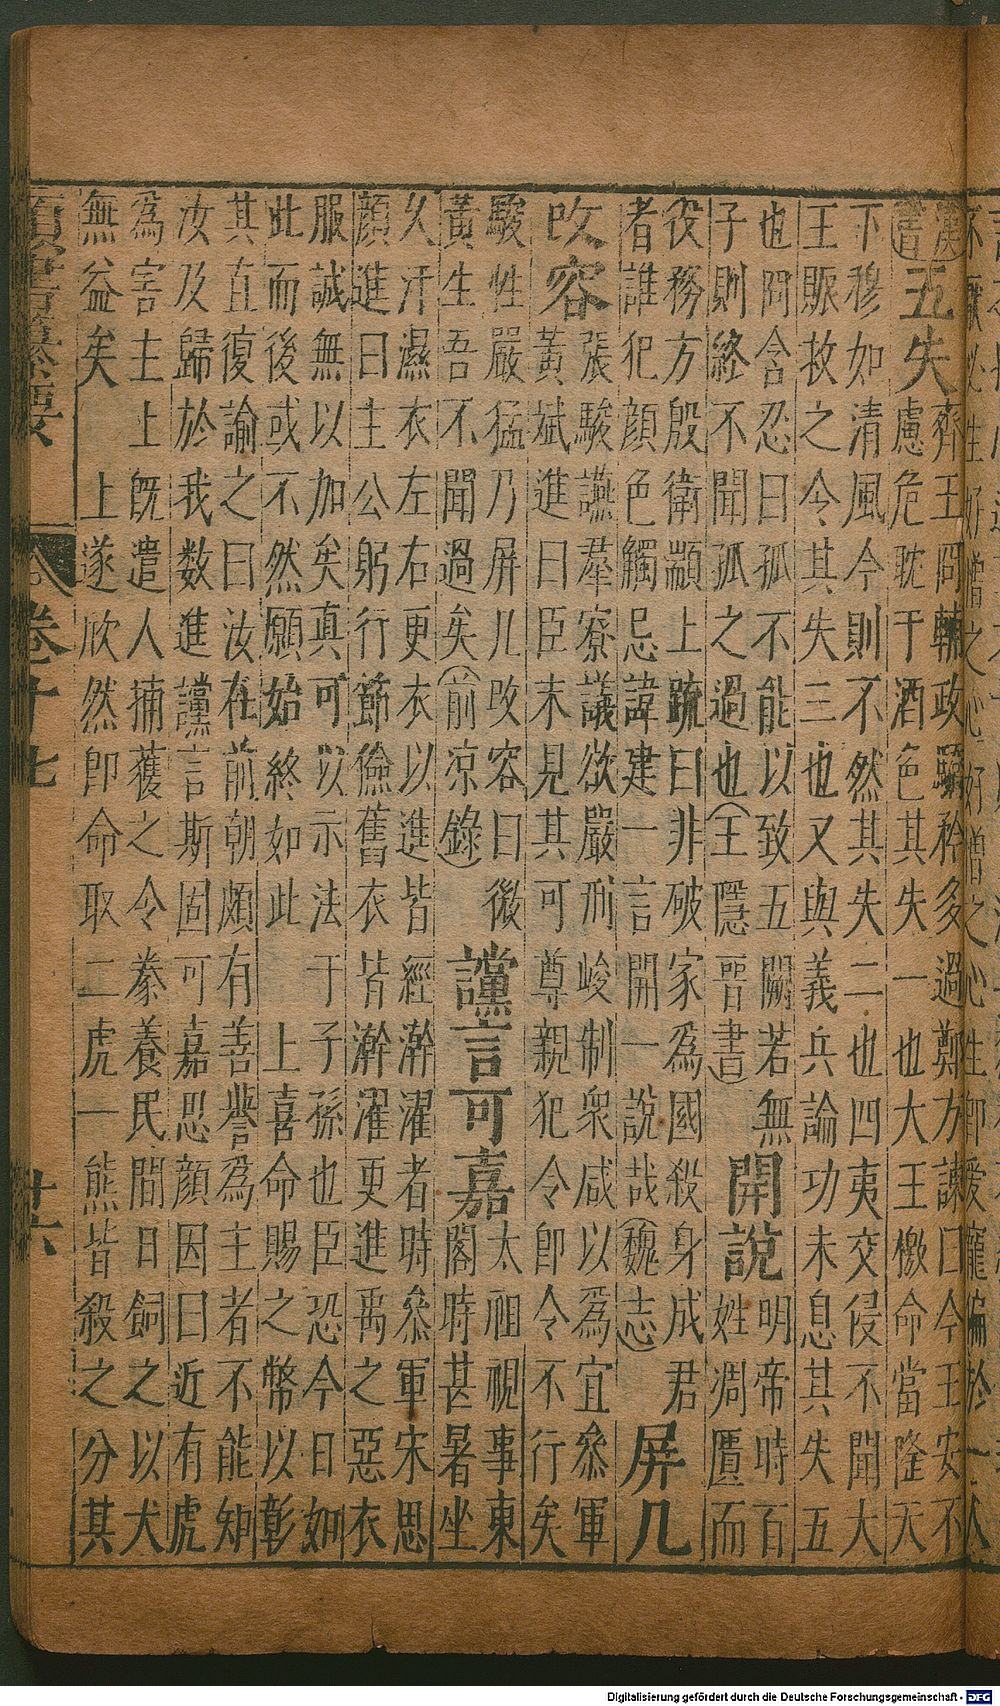 漢書
五失
齊王冏輔政驕矜多過鄭方諫曰今王安不
慮危耽于酒色其失一也大王檄命當隆天
下穆如清風今則不然其失二也四夷交侵不聞大
王賑救之令其失三也又與義兵論功未息其失五
也冏含忍曰孤不能以致五闕若無
子則終不聞孤之過也(王隱晉書)
開說
明帝時百
姓凋匱而
役務方殷衛顗上疏曰非破家爲國殺身成君
者誰犯顏色觸忌諱建一言開一說哉(魏志)
屏几
改容
張駿讌羣寮議欲嚴刑峻制衆咸以爲宜叅軍
黃斌進曰臣未見其可尊親犯令即令不行矣
駿性嚴猛乃屏几改容曰微
黃生吾不聞過矣(前凉錄)
讜言可嘉
太祖視事東
閣時甚暑坐
久汗濕衣左右更衣以進皆經澣濯者時叅軍宋思
顏進曰主公躬行節儉舊衣皆澣濯更進禹之惡衣
服誠無以加矣真可以示法于子孫也臣恐今日如
此而後或不然願始終如此 上喜命賜之幣以彰
其直復諭之曰汝在前朝頗有善譽爲主者不能知
汝及歸於我數進讜言斯固可嘉思顏因曰近有虎
爲害主上既遣人捕獲之令豢養民間日飼之以犬
無益矣 上遂欣然即命取二虎一熊皆殺之分其
卷十七
廿六
Digitalisierung gefördert durch die Deutsche Forschungsgemeinschaft - DFG